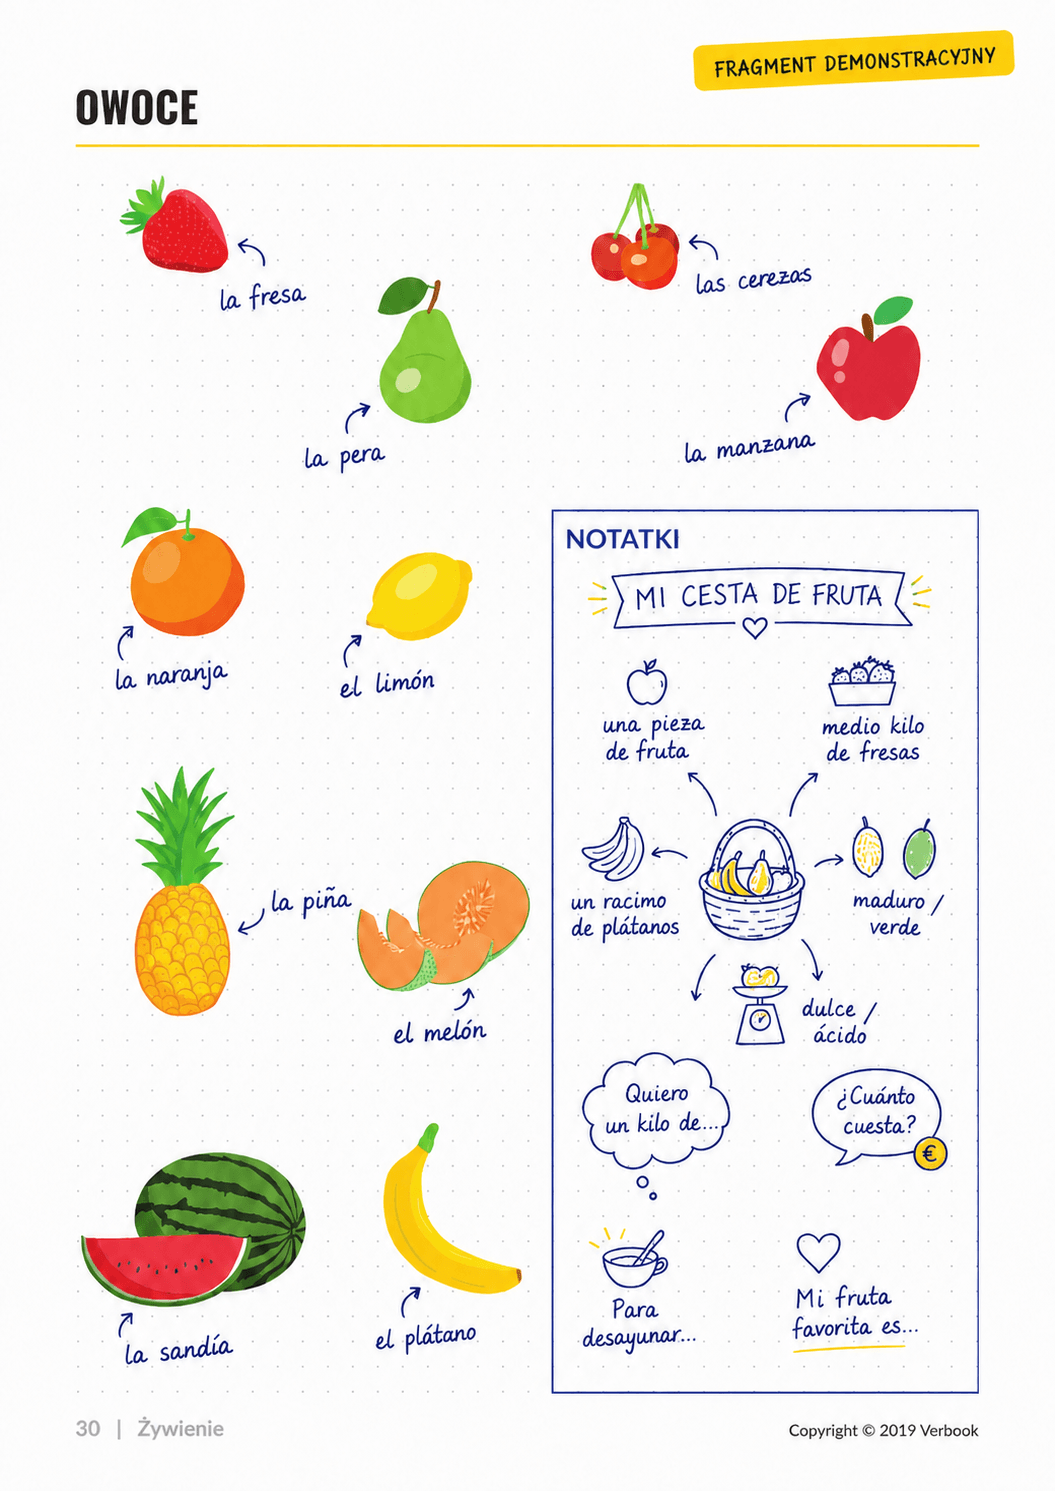 FRAGMENT DEMONSTRACYJNY
OWOCE
la fresa
las cerezas
la pera
la manzana
la naranja
el limón
la piña
el melón
la sandía
el plátano
NOTATKI
MI CESTA DE FRUTA
una pieza
de fruta
medio kilo
de fresas
un racimo
de plátanos
maduro /
verde
dulce /
ácido
Quiero
un kilo de...
¿Cuánto
cuesta?
€
Para
desayunar...
Mi fruta
favorita es...
30 | Żywienie
Copyright © 2019 Verbook